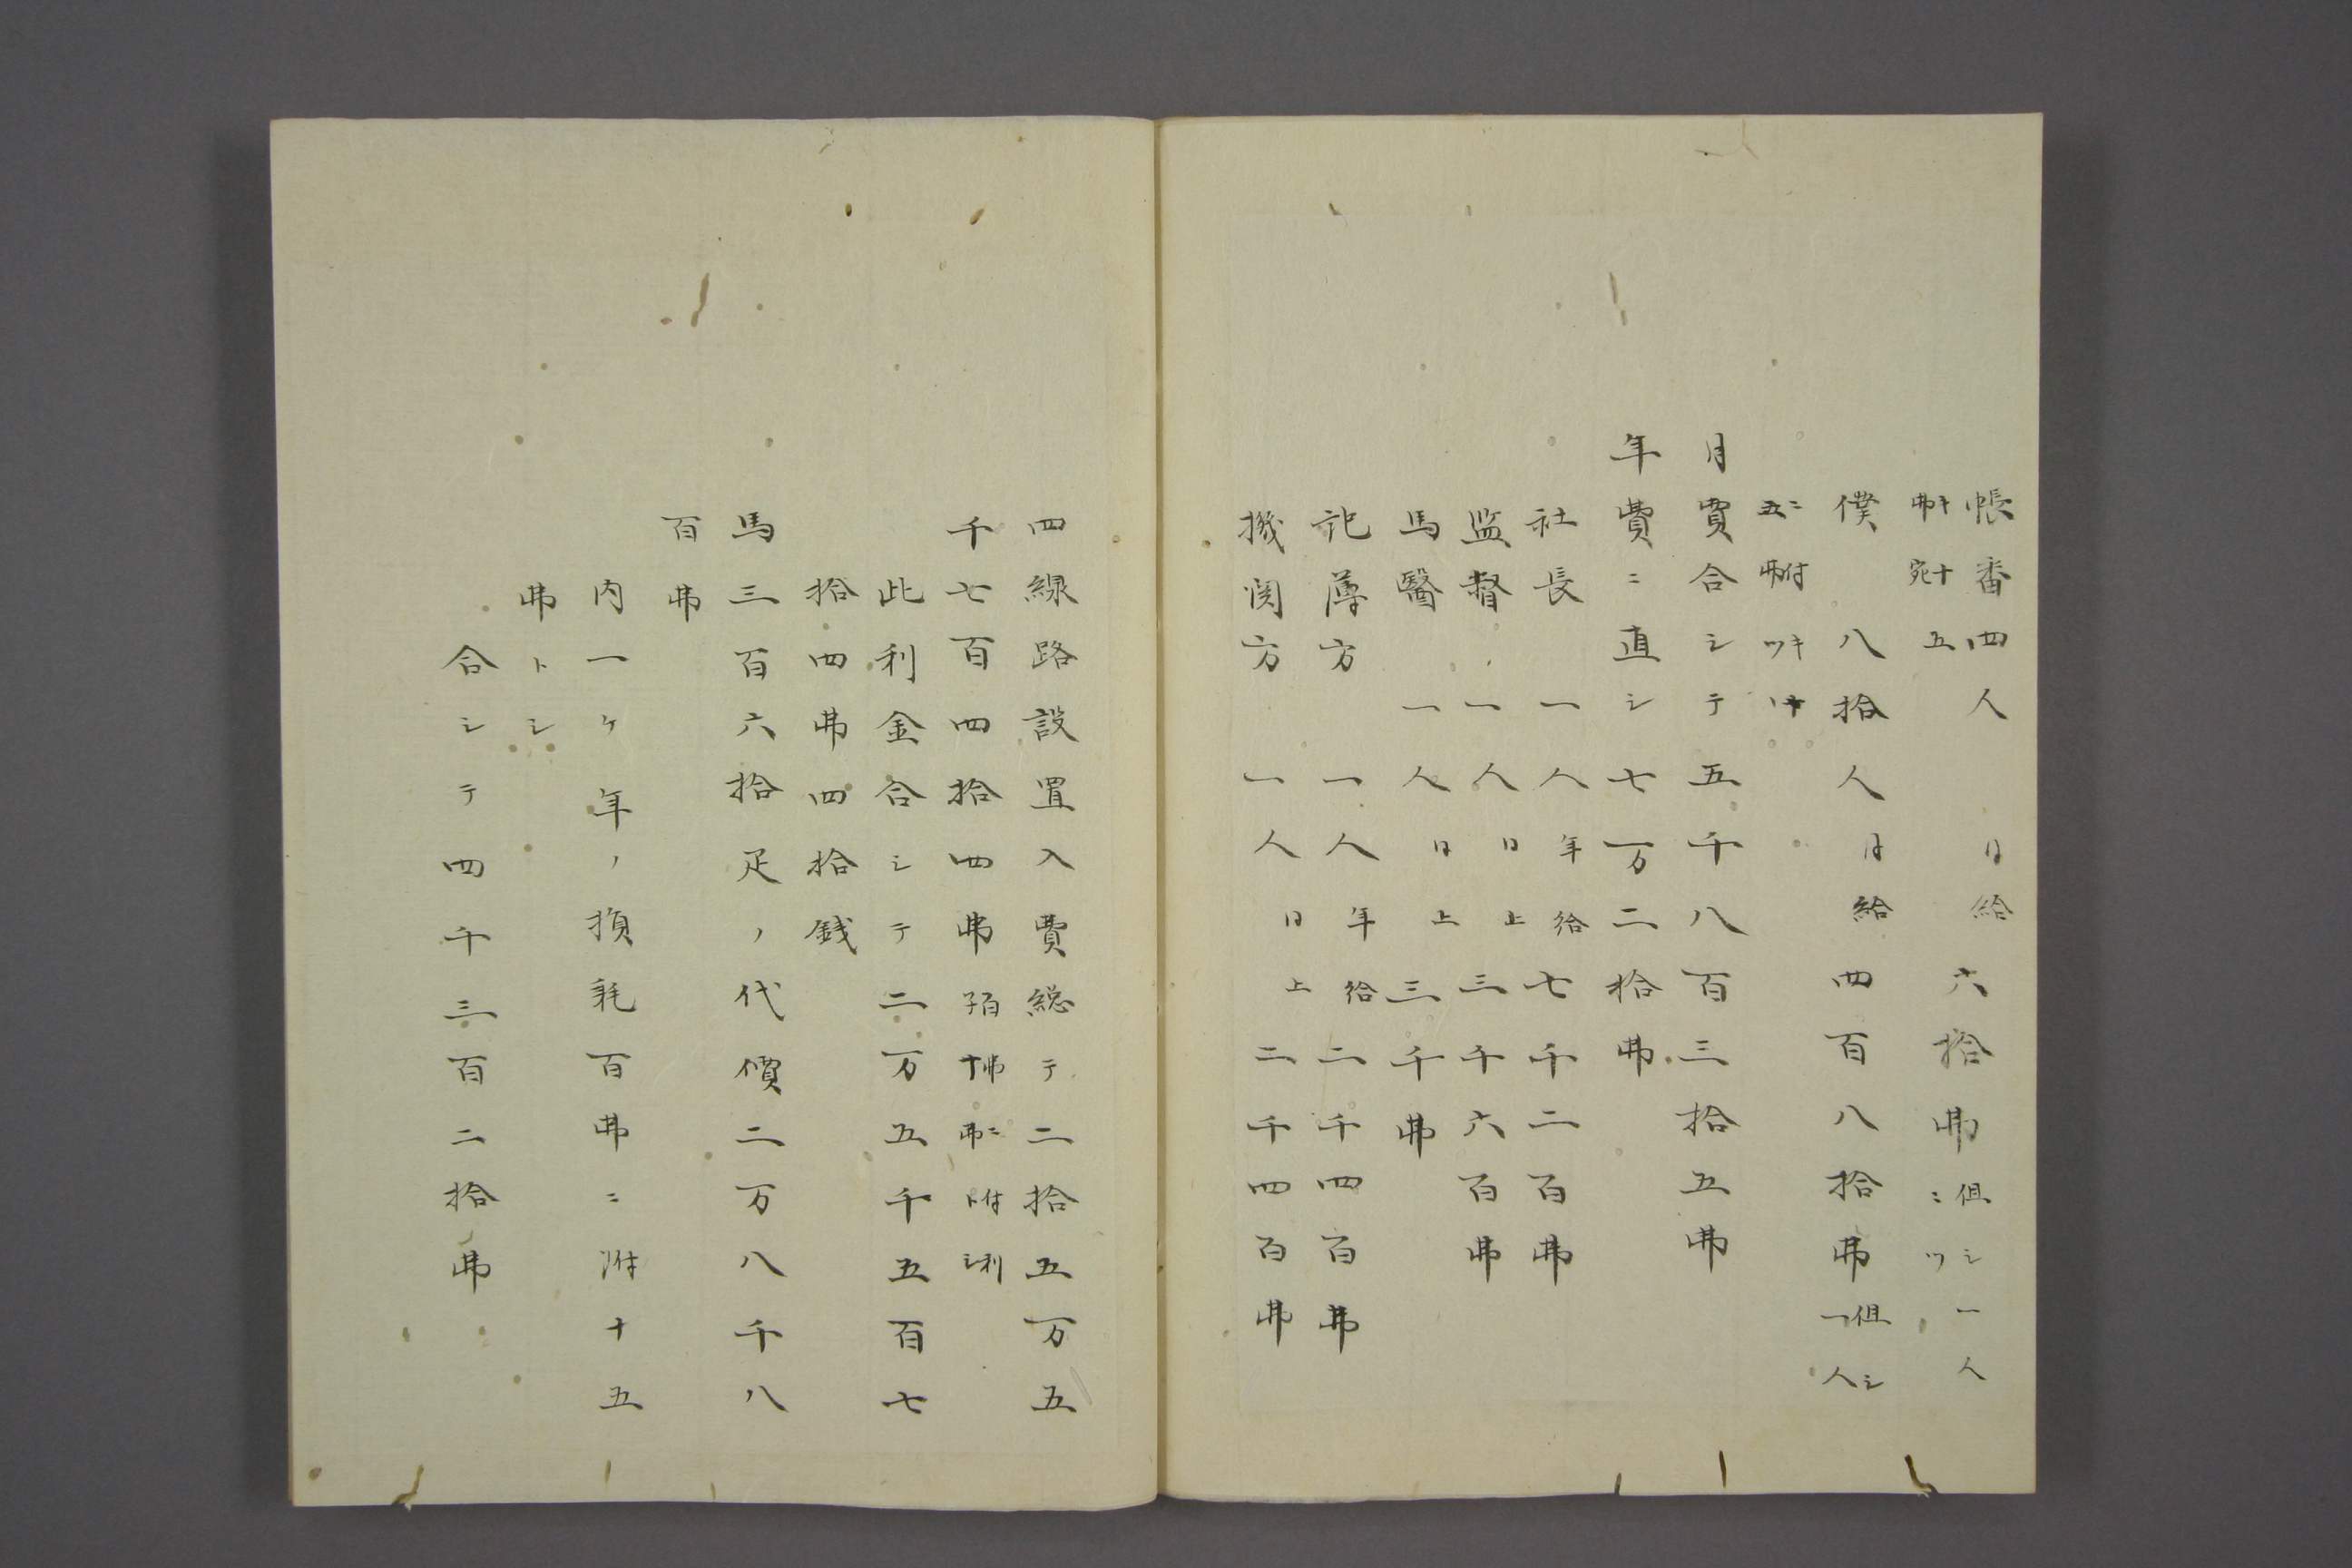 帳番四人 月給 六拾弗 但シ一人ニツ
キ十五弗宛
僕 八拾人 月給 四百八拾弗 但シ一人
ニ付キ十五弗ツヽ
月費合シテ五千八百三拾五弗
年費ニ直シ七万二拾弗
社長 一人 年給 七千二百弗
監督 一人 日上 三千六百弗
馬醫 一人 日上 三千弗
記簿方 一人 年給 二千四百弗
機関方 一人 日上 二千四百弗
四線路設置入費総テ二拾五万五
千七百四拾四弗 百弗ニ付利子十弗トシ
此利金合シテ二万五千五百七
拾四弗四拾銭
馬三百六拾疋ノ代價二万八千八
百弗
内一ケ年ノ損耗百弗ニ附十五
弗トシ
合シテ四千三百二拾弗